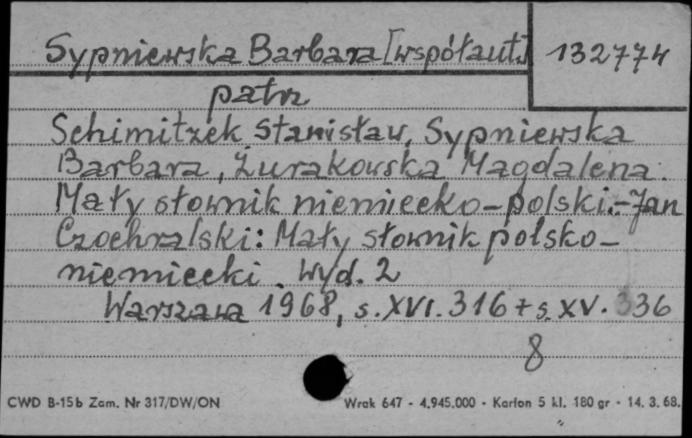 Sypniewska Barbara [współaut.] 132774
patrz
Schimitzek Stanisław, Sypniewska
Barbara, Żurakowska Magdalena:
Mały słownik niemiecko-polski.-Jan
Czochralski: Mały słownik polsko-
niemiecki. Wyd. 2
Warszawa 1968, s. XVI. 316 + s. XV. 336
8
CWD B-15b Zam. Nr 317/DW/ON Wrak 647 - 4.945.000 - Karton 5 kl. 180 gr - 14. 3. 68.